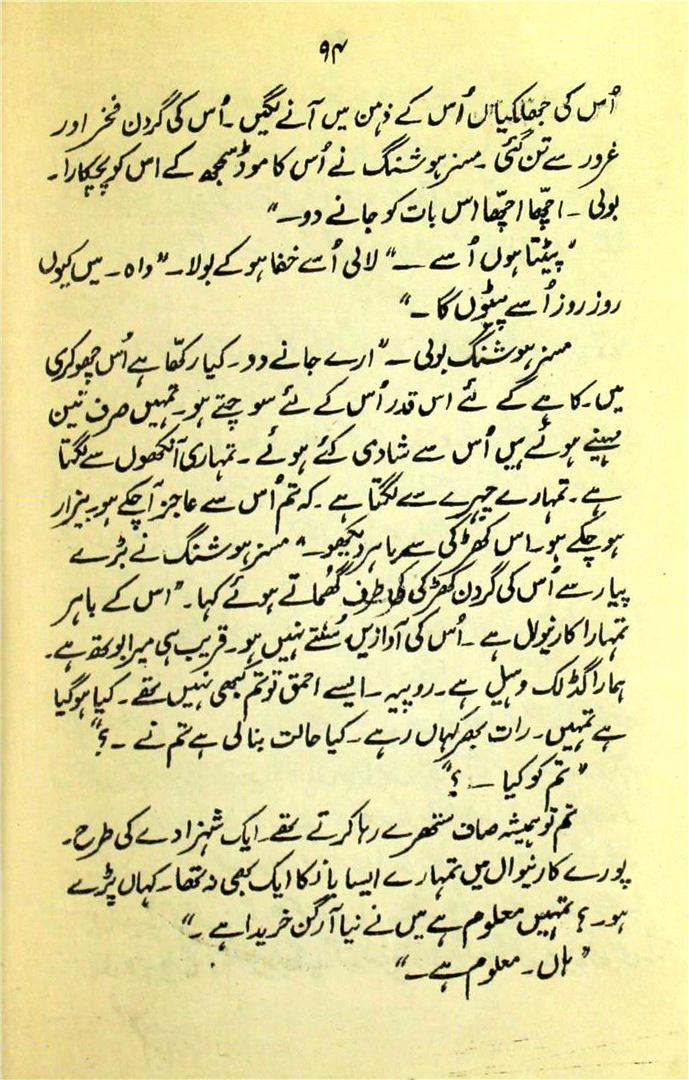 ۹۴
اُس کی جھلکیاں اُس کے ذہن میں آنے لگیں۔ اُس کی گردن فخر اور
غرور سے تن گئی۔ مسز ہوشنگ نے اُس کا موڈ سمجھ کے اس کو پچکارا۔
بولی۔ اچھّا اچھّا اس بات کو جانے دو۔"
"پیٹتا ہوں اُسے ـــ" لالی اُسے خفا ہو کے بولا۔ "واہ۔ میں کیوں
روز روز اُسے پیٹوں گا۔"
مسز ہوشنگ بولی۔ "ارے جانے دو۔ کیا رکھّا ہے اُس چھوکری
میں۔ کاہے کے لئے اس قدر اُس کے لئے سوچتے ہو۔ تمہیں صرف تین
مہینے ہوئے ہیں اُس سے شادی کئے ہوئے۔ تمہاری آنکھوں سے لگتا
ہے۔ تمہارے چہرے سے لگتا ہے۔ کہ تم اُس سے عاجز آ چکے ہو۔ بیزار
ہو چکے ہو۔ اس کھڑکی سے باہر دیکھو۔" مسز ہوشنگ نے بڑے
پیار سے اُس کی گردن کھڑکی کی طرف گھماتے ہوئے کہا۔ "اس کے باہر
تمہارا کارنیوال ہے۔ اُس کی آوازیں سُنتے نہیں ہو۔ قریب ہی میرا بوتھ ہے۔
ہمارا گڈ لک وہیل ہے۔ روپیہ۔ ایسے احمق تو تم کبھی نہیں تھے۔ کیا ہو گیا
ہے تمہیں۔ رات بھر کہاں رہے۔ کیا حالت بنا لی ہے تم نے۔؟"
"تم کو کیا ـ؟"
تم تو ہمیشہ صاف ستھرے رہا کرتے تھے۔ ایک شہزادے کی طرح۔
پورے کارنیوال میں تمہارے ایسا بانکا ایک بھی نہ تھا۔ کہاں پڑے
ہو۔؟ تمہیں معلوم ہے میں نے نیا آرگن خریدا ہے۔"
"ہاں۔ معلوم ہے۔"